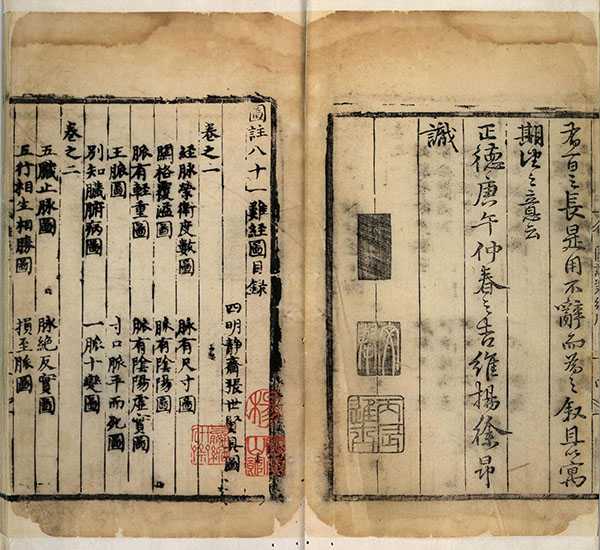 者百之長是用不辭而為之叙且以寓
期望之意云
正德庚午仲春之吉維揚徐昂
識
丙辰進士
圖註八十一難經圖目錄
四明靜齋張世賢具圖
卷之一
經脉榮衛度數圖 脉有尺寸圖
關格覆溢圖 脉有陰陽圖
脉有輕重圖 脉有陰陽虛實圖
王脉圖 寸口脉平而死圖
別知臟腑病圖 一脉十變圖
卷之二
五臟止脉圖 脉絕反實圖
五行相生相勝圖 損至脉圖